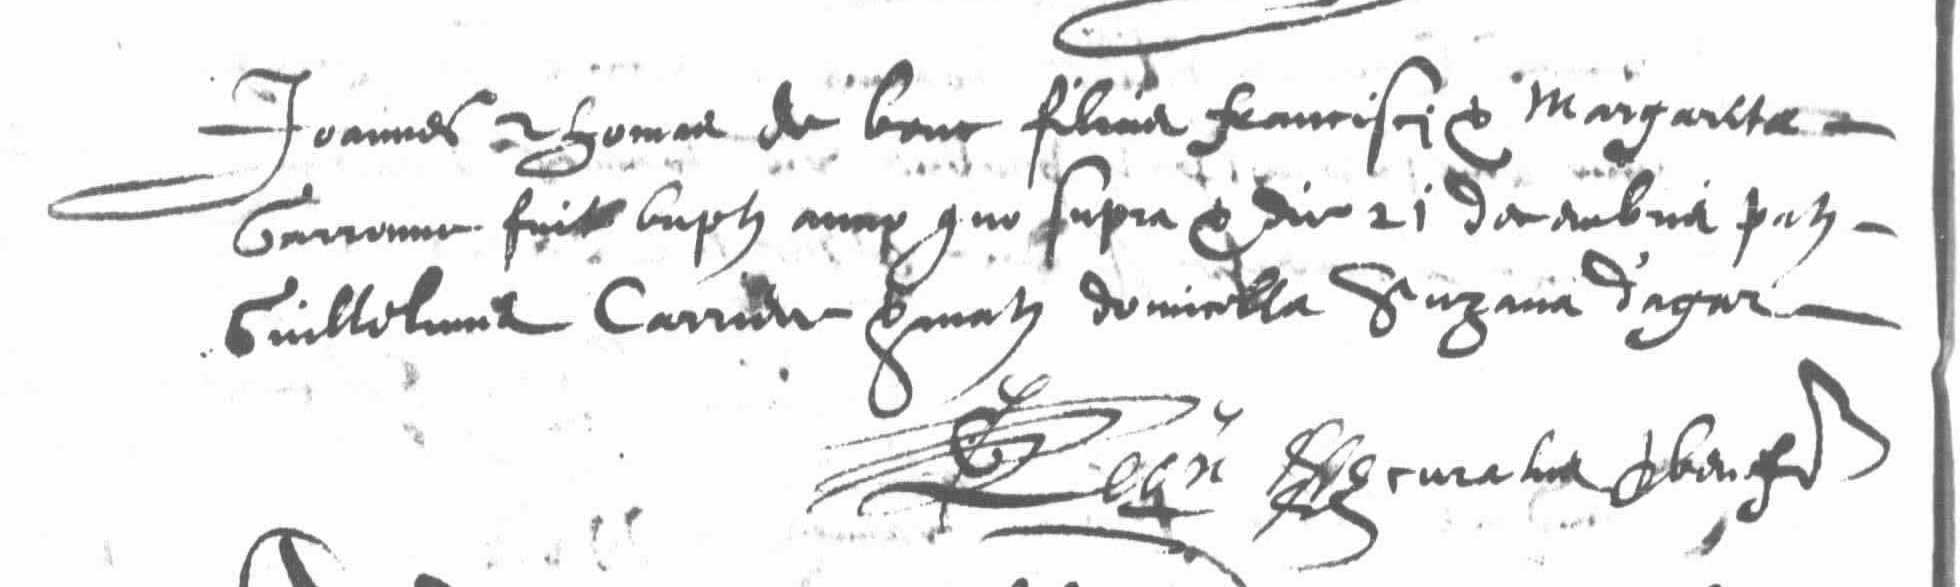 Joannes Thomas de benc filius francisci & Margarita
Garronne fuit baptz anno quo supra & die 21 decembris patz
Guillelmus Carriere & matz domicella Suzana d'agar
curatus & benef